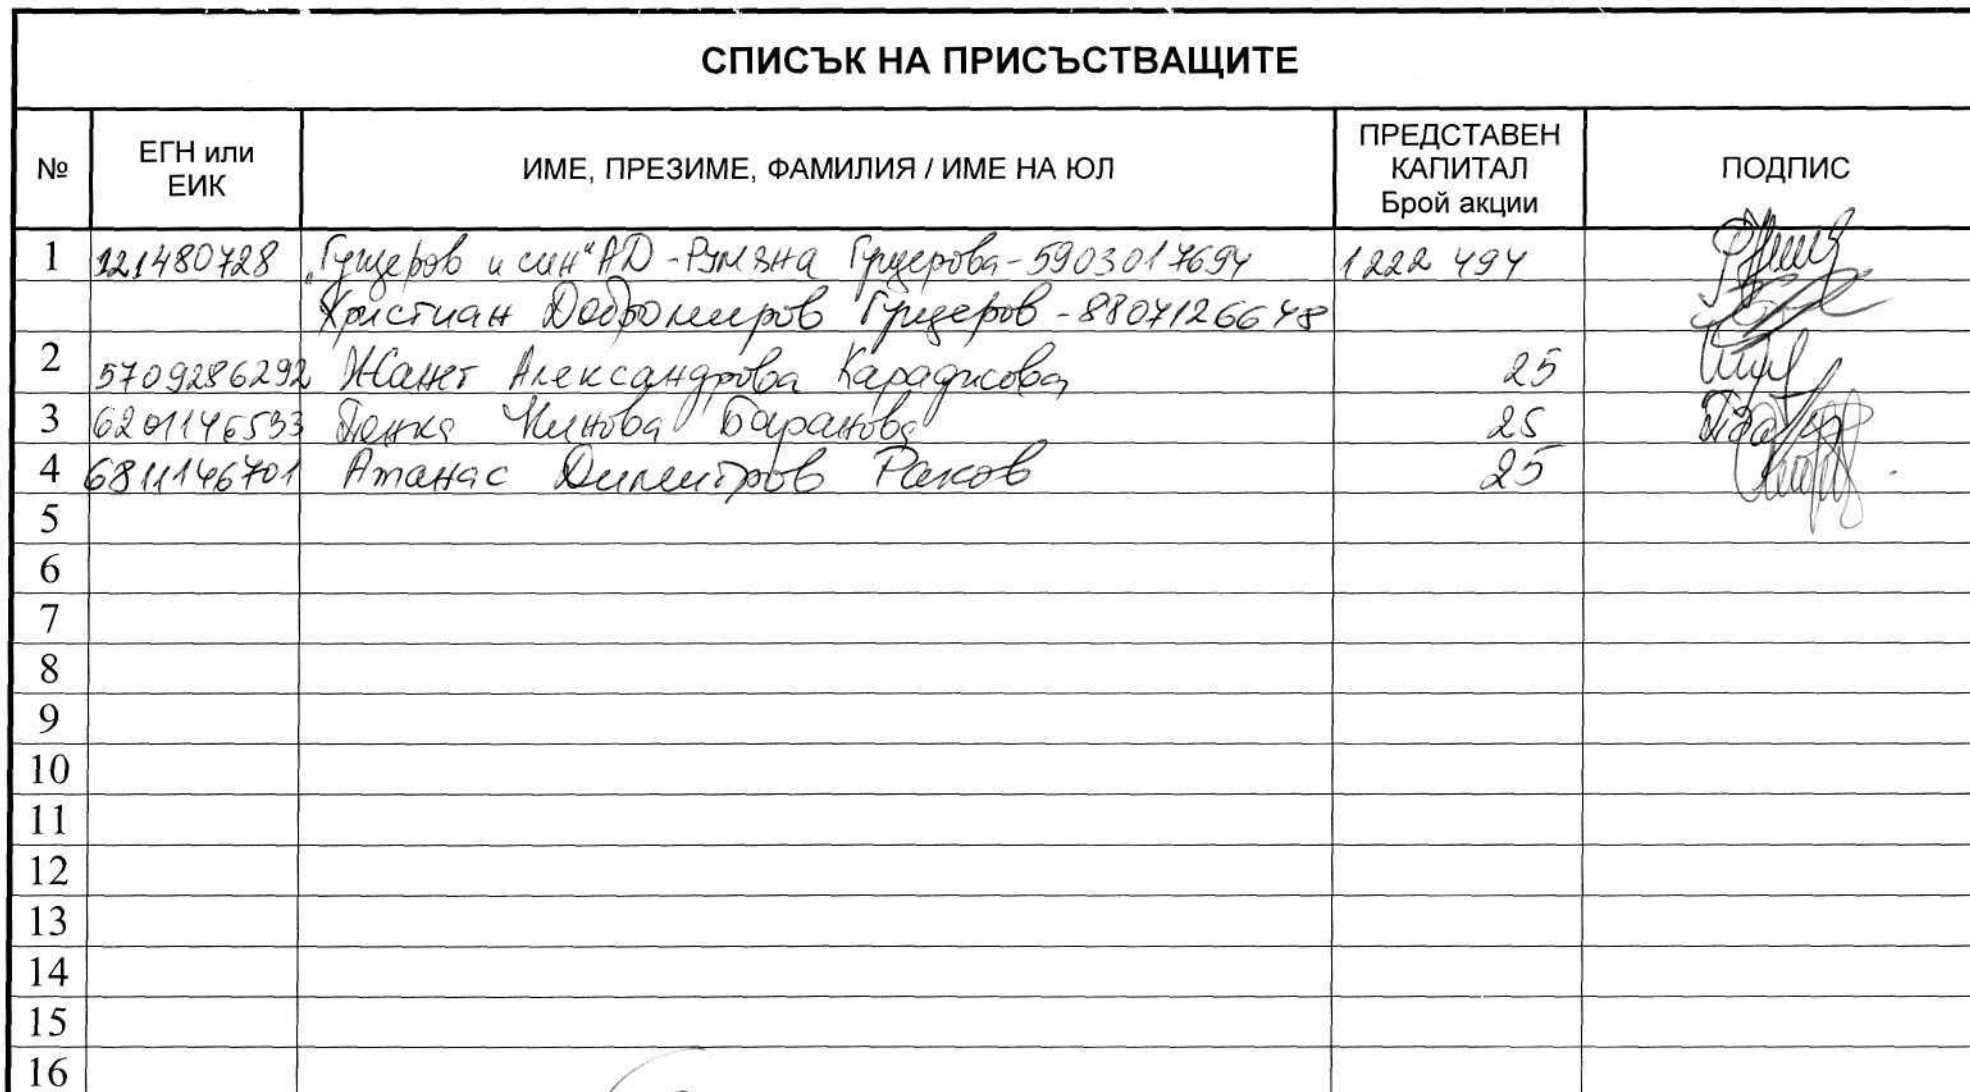 СПИСЪК НА ПРИСЪСТВАЩИТЕ
№ ЕГН или ЕИК ИМЕ, ПРЕЗИМЕ, ФАМИЛИЯ / ИМЕ НА ЮЛ ПРЕДСТАВЕН КАПИТАЛ Брой акции ПОДПИС
1 121480728 „Гущеров и син“ АД - Румяна Гущерова - 5903017694 1222 494
Християн Добромиров Гущеров - 8807126648
2 5709286292 Жанет Александрова 25
3 6201146533 Пенка Баранова 25
4 6811146701 Атанас Димитров Раков 25
5
6
7
8
9
10
11
12
13
14
15
16